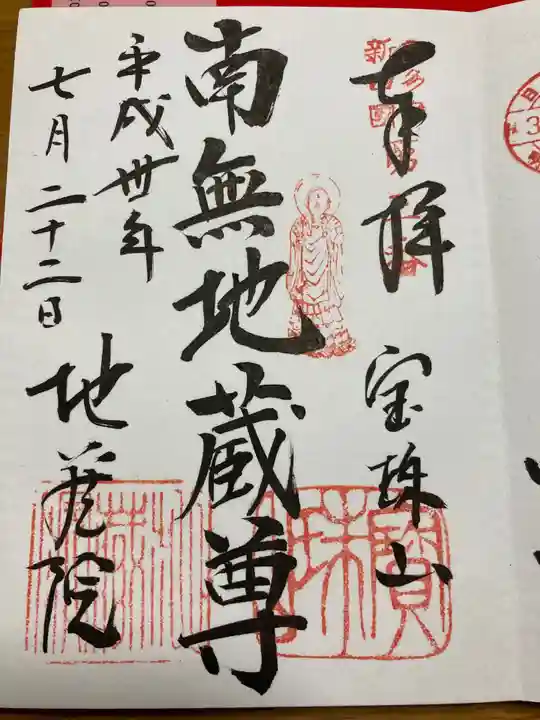 奉拝 宝珠山
南無地蔵尊
平成卅年
七月二十二日
地蔵院